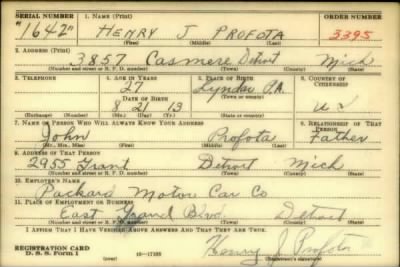 SERIAL NUMBER 1. NAME (Print) ORDER NUMBER
"1642" HENRY J PROFOTA 3395
(First) (Middle) (Last)
2. ADDRESS (Print)
3857 Casmere Detroit Mich
(Number and street or R. F. D. number) (Town) (County) (State)
3. TELEPHONE 4. AGE IN YEARS 5. PLACE OF BIRTH 6. COUNTRY OF CITIZENSHIP
27 Lyndau P.A.
DATE OF BIRTH (Town or county)
8 21 13 U S
(Exchange) (Number) (Mo.) (Day) (Yr.) (State or country)
7. NAME OF PERSON WHO WILL ALWAYS KNOW YOUR ADDRESS 8. RELATIONSHIP OF THAT PERSON
John Profota Father
(Mr., Mrs., Miss) (First) (Middle) (Last)
9. ADDRESS OF THAT PERSON
2955 Grant Detroit Mich
(Number and street or R. F. D. number) (Town) (County) (State)
10. EMPLOYER'S NAME
Packard Motor Car Co
11. PLACE OF EMPLOYMENT OR BUSINESS
East Grand Blvd Detroit
(Number and street or R. F. D. number) (Town) (County) (State)
I AFFIRM THAT I HAVE VERIFIED ABOVE ANSWERS AND THAT THEY ARE TRUE.
REGISTRATION CARD Henry J. Profota
D. S. S. Form 1 16—17105 (Registrant's signature)